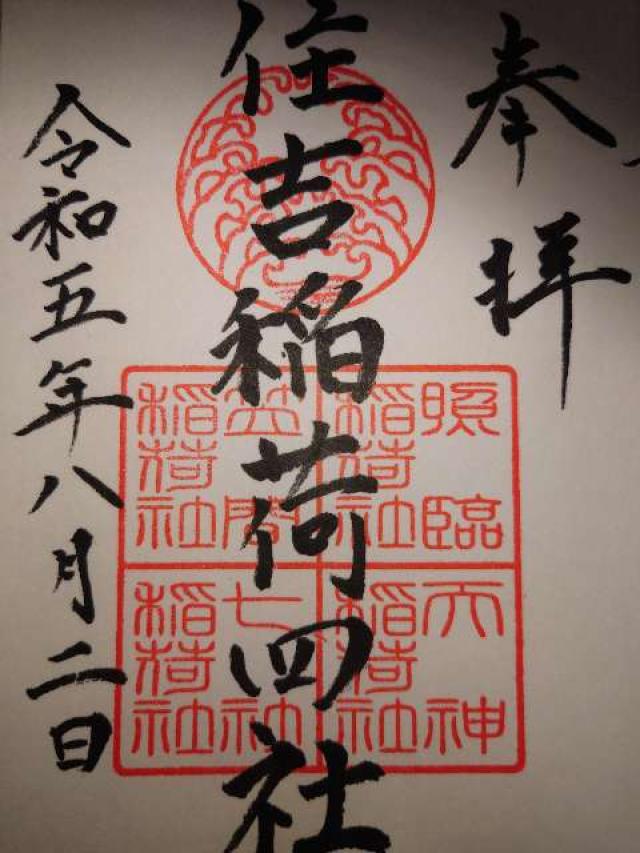 奉拝
住吉稲荷四社
令和五年八月二日
照臨
稲荷社
笠間
稲荷社
天神
稲荷社
七社
稲荷社